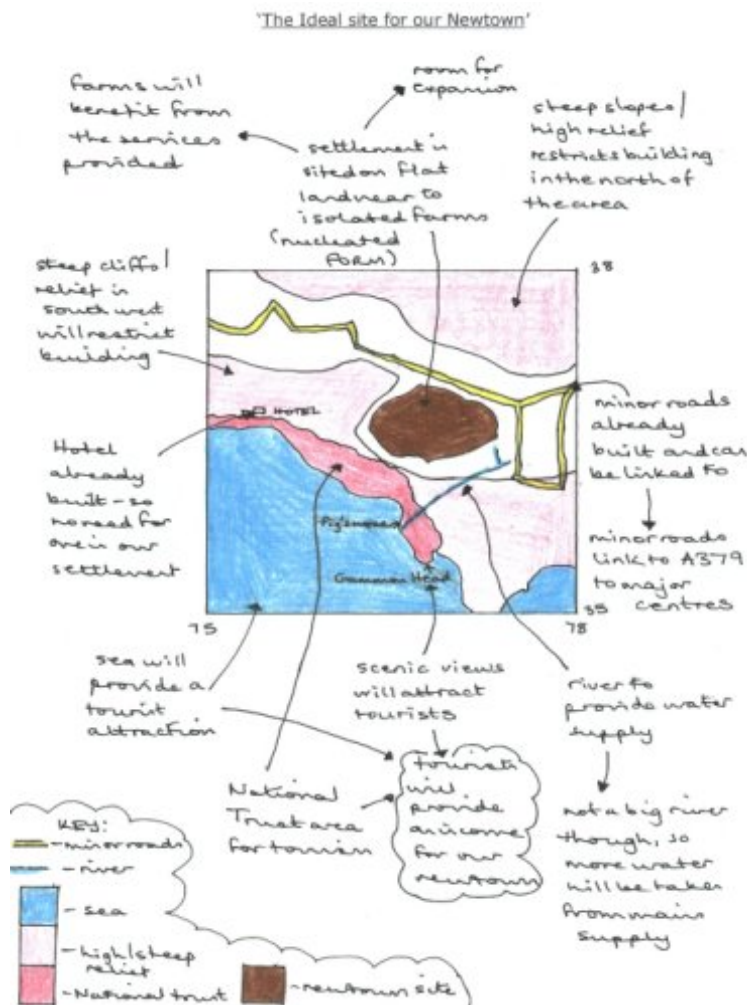 'The Ideal site for our Newtown'
farms will
benefit from
the services
provided
room for
expansion
settlement is
sited on flat
land near to
isolated farms
(nucleated
FORM)
steep slopes/
high relief
restricts building
in the north of
the area
steep cliffs/
relief in
south west
will restrict
building
38
HOTEL
Hotel
already
built - so
no need for
one in our
settlement
minor roads
already
built and can
be linked to
minor roads
link to A379
to major
centres
Gammon Head
75
78
35
sea will
provide a
tourist
attraction
scenic views
will attract
tourists
river to
provide water
supply
National
Trust area
for tourism
tourists
will
provide
an income
for our
newtown
not a big river
though, so
more water
will be taken
from mains
supply
KEY:
- minor roads
- river
- sea
- high/steep
relief
- National trust
- newtown site